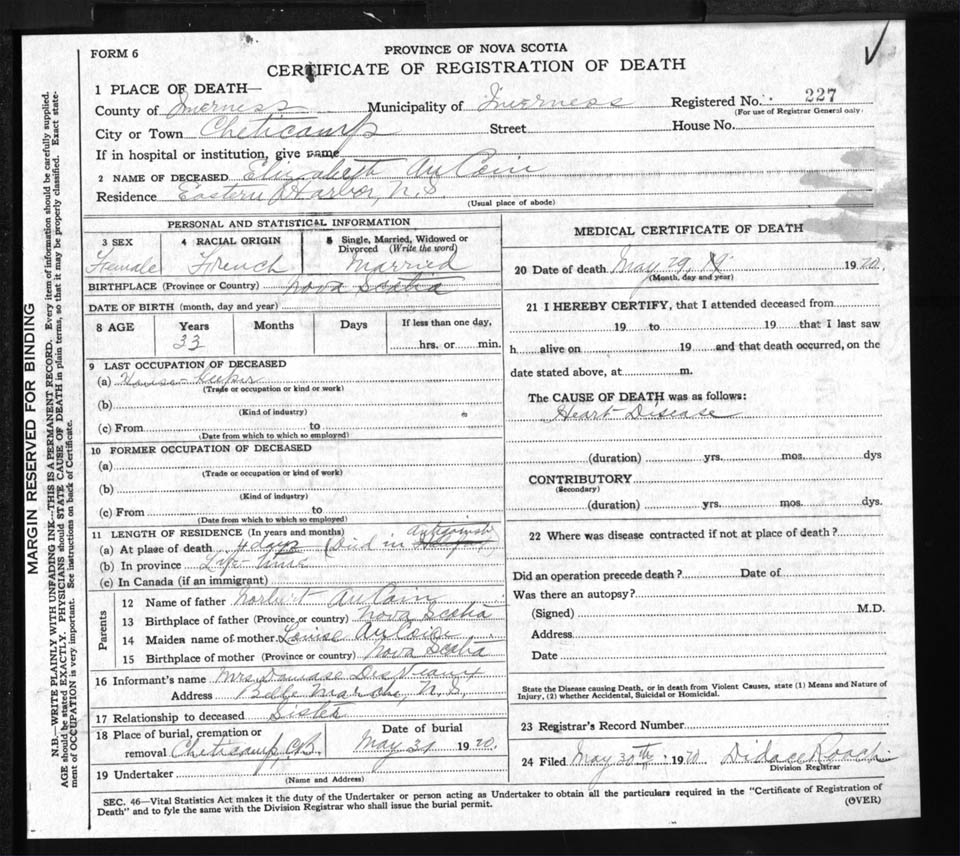 FORM 6
PROVINCE OF NOVA SCOTIA
CERTIFICATE OF REGISTRATION OF DEATH
1 PLACE OF DEATH—
County of Inverness Municipality of Inverness Registered No. 227
(For use of Registrar General only)
City or Town Cheticamp Street House No.
If in hospital or institution, give name
2 NAME OF DECEASED Elizabeth AuCoin
Residence Eastern Harbor, N.S.
(Usual place of abode)
PERSONAL AND STATISTICAL INFORMATION
3 SEX 4 RACIAL ORIGIN 5 Single, Married, Widowed or Divorced (Write the word)
Female French Married
BIRTHPLACE (Province or Country) Nova Scotia
DATE OF BIRTH (month, day and year)
8 AGE Years Months Days If less than one day,
33 hrs. or min.
9 LAST OCCUPATION OF DECEASED
(a) House-Keeper
(Trade or occupation or kind or work)
(b)
(Kind of industry)
(c) From to
(Date from which to which so employed)
10 FORMER OCCUPATION OF DECEASED
(a)
(Trade or occupation or kind of work)
(b)
(Kind of industry)
(c) From to
(Date from which to which so employed)
11 LENGTH OF RESIDENCE (In years and months)
(a) At place of death 4 days (Died in Antigonish)
(b) In province Life time
(c) In Canada (if an immigrant)
Parents
12 Name of father Norbert AuCoin
13 Birthplace of father (Province or country) Nova Scotia
14 Maiden name of mother Louise AuCoin
15 Birthplace of mother (Province or country) Nova Scotia
16 Informant's name Mrs Damase
Address Belle Marche, N.S.
17 Relationship to deceased Sister
18 Place of burial, cremation or removal Cheticamp, C.B. Date of burial May 31 1920.
19 Undertaker
(Name and Address)
MEDICAL CERTIFICATE OF DEATH
20 Date of death May 29, 1920.
(Month, day and year)
21 I HEREBY CERTIFY, that I attended deceased from
19 to 19 that I last saw
h alive on 19 and that death occurred, on the
date stated above, at m.
The CAUSE OF DEATH was as follows:
Heart Disease
(duration) yrs. mos. dys
CONTRIBUTORY
(Secondary)
(duration) yrs. mos. dys.
22 Where was disease contracted if not at place of death?
Did an operation precede death? Date of
Was there an autopsy?
(Signed) M.D.
Address
Date
State the Disease causing Death, or in death from Violent Causes, state (1) Means and Nature of
Injury, (2) whether Accidental, Suicidal or Homicidal.
23 Registrar's Record Number
24 Filed May 30th 1920 Didace Roach
Division Registrar
SEC. 46—Vital Statistics Act makes it the duty of the Undertaker or person acting as Undertaker to obtain all the particulars required in the "Certificate of Registration of
Death" and to fyle the same with the Division Registrar who shall issue the burial permit.
(OVER)
MARGIN RESERVED FOR BINDING
N.B.—WRITE PLAINLY WITH UNFADING INK—THIS IS A PERMANENT RECORD. Every item of information should be carefully supplied.
AGE should be stated EXACTLY. PHYSICIANS should STATE CAUSE OF DEATH in plain terms, so that it may be properly classified. Exact state-
ment of OCCUPATION is very important. See instructions on back of Certificate.